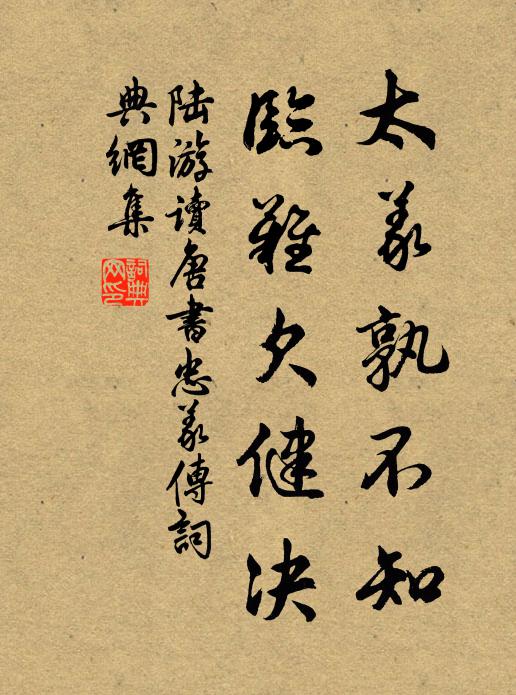 太義孰不知
臨難欠健決
陸游讀唐書忠義傳詞
典網集
詞典網印